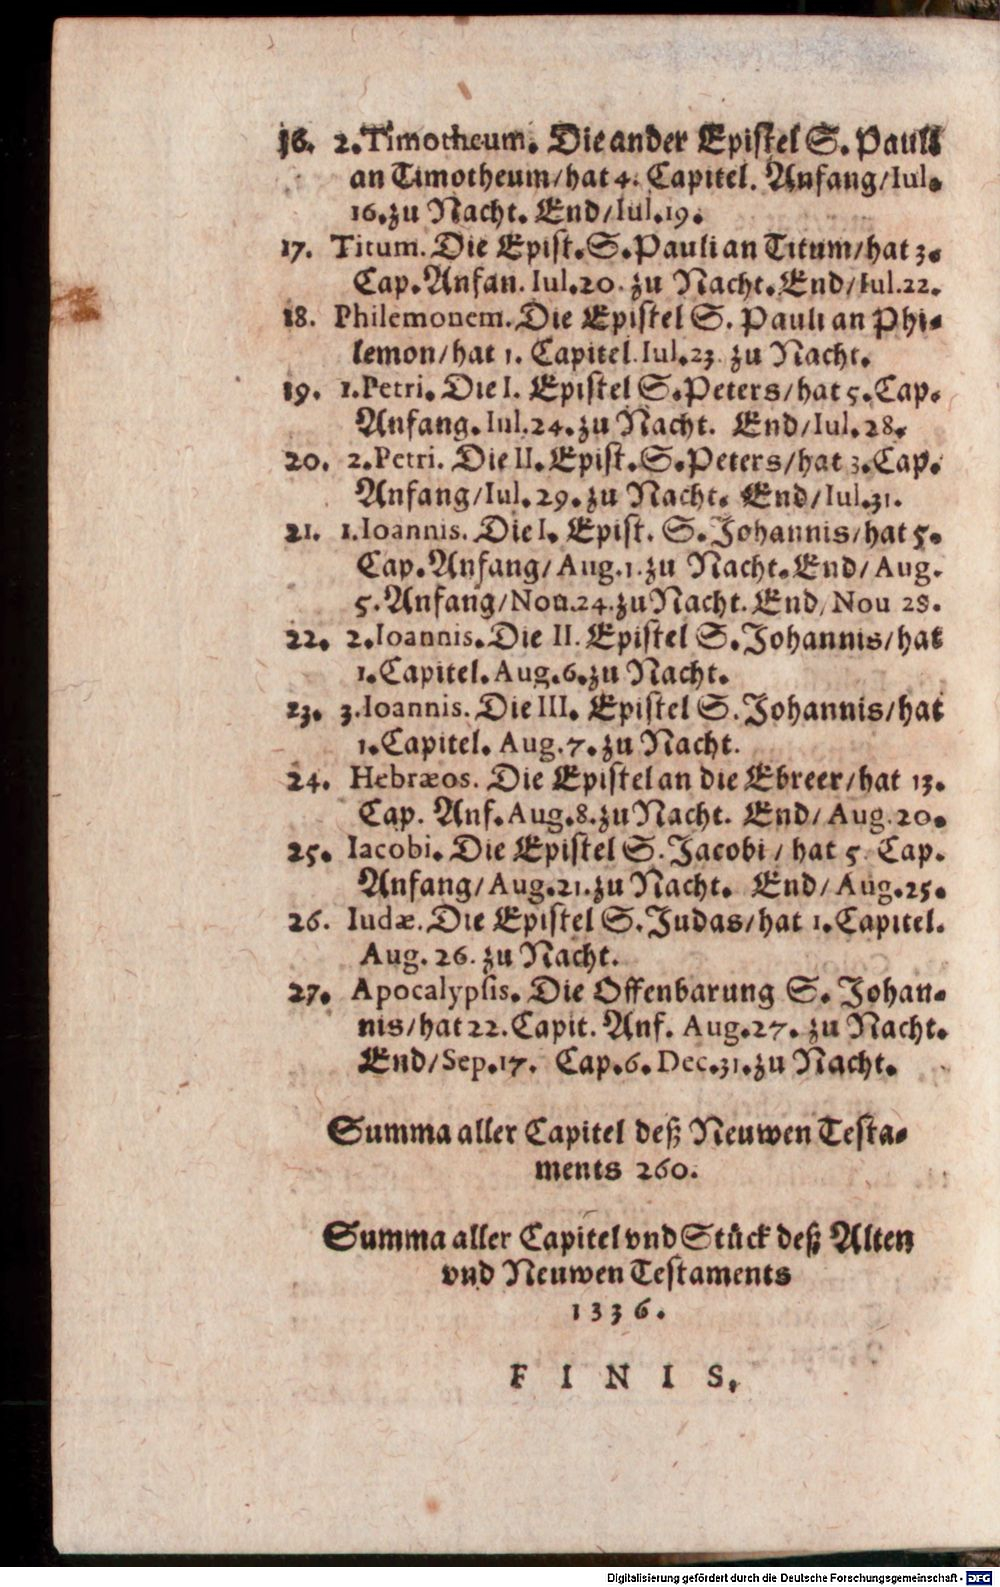 16. 2.Timotheum. Die ander Epistel S. Pauli
an Timotheum/hat 4. Capitel. Anfang/Iul.
16.zu Nacht. End/Iul.19.
17. Titum. Die Epist.S.Pauli an Titum/hat 3.
Cap.Anfan. Iul.20. zu Nacht.End/Iul.22.
18. Philemonem.Die Epistel S. Pauli an Phi-
lemon/hat 1. Capitel.Iul.23. zu Nacht.
19. 1.Petri.Die I. Epistel S.Peters/hat 5.Cap.
Anfang.Iul.24.zu Nacht. End/Iul.28.
20. 2.Petri. Die II.Epist.S.Peters/hat 3.Cap.
Anfang/Iul.29.zu Nacht. End/Iul.31.
21. 1.Ioannis. Die I. Epist. S.Johannis/hat 5.
Cap.Anfang/Aug.1.zu Nacht.End/Aug.
5.Anfang/Nou.24.zu Nacht. End/Nou 28.
22. 2.Ioannis.Die II. Epistel S.Johannis/hat
1.Capitel.Aug.6.zu Nacht.
23. 3.Ioannis. Die III. Epistel S.Johannis/hat
1.Capitel. Aug.7.zu Nacht.
24. Hebræos. Die Epistel an die Ebreer/hat 13.
Cap. Anf.Aug.8.zu Nacht. End/Aug.20.
25. Iacobi.Die Epistel S.Jacobi/hat 5 Cap.
Anfang/Aug.21.zu Nacht. End/Aug.25.
26. Iudæ.Die Epistel S.Judas/hat 1.Capitel.
Aug.26.zu Nacht.
27. Apocalypsis. Die Offenbarung S. Johan-
nis/hat 22.Capit. Anf. Aug.27. zu Nacht.
End/Sep.17. Cap.6.Dec.31.zu Nacht.
Summa aller Capitel deß Neuwen Testa-
ments 260.
Summa aller Capitel vnd Stück deß Alten
vnd Neuwen Testaments
1336.
FINIS.
Digitalisierung gefördert durch die Deutsche Forschungsgemeinschaft - DFG